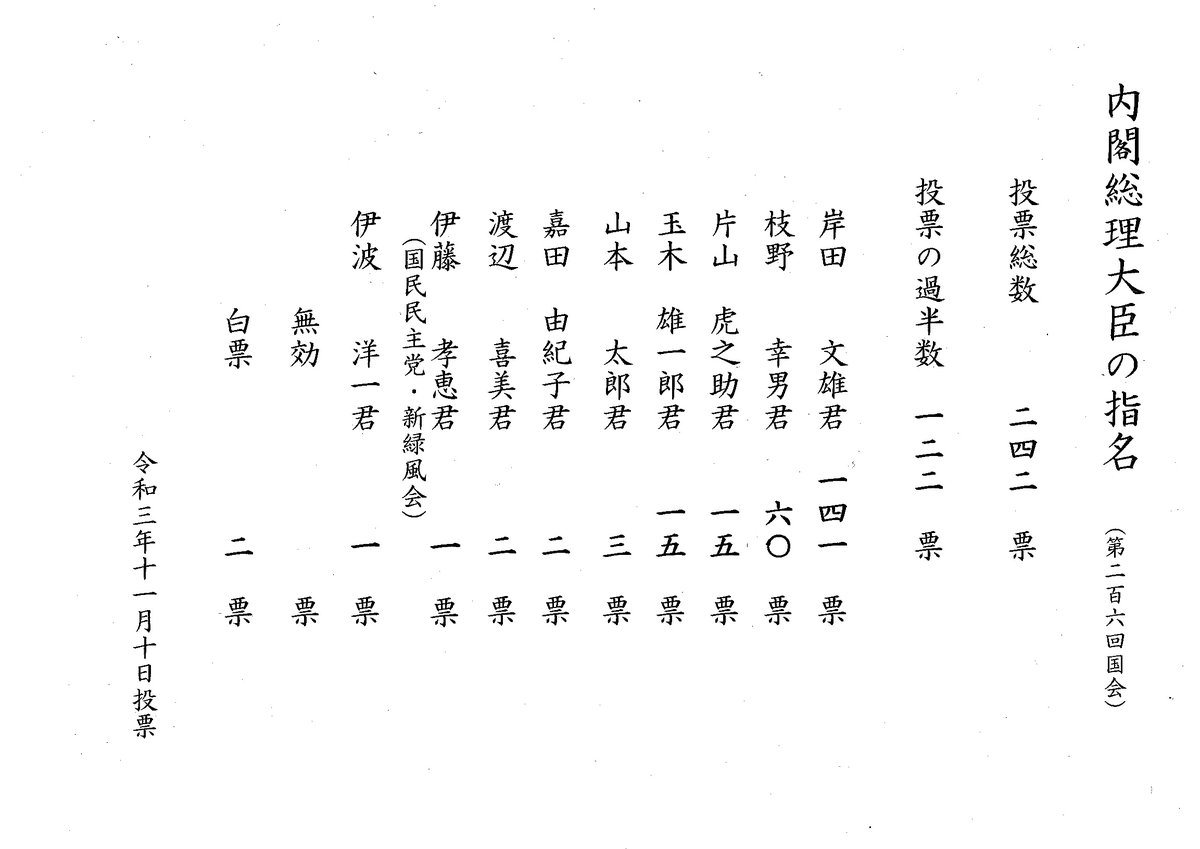 内閣総理大臣の指名 （第二百六回国会）
投票総数 二四二 票
投票の過半数 一二二 票
岸田 文雄君 一四一 票
枝野 幸男君 六〇 票
片山 虎之助君 一五 票
玉木 雄一郎君 一五 票
山本 太郎君 三 票
嘉田 由紀子君 二 票
渡辺 喜美君 二 票
伊藤 孝恵君 一 票
（国民民主党・新緑風会）
伊波 洋一君 一 票
無効 票
白票 二 票
令和三年十一月十日投票